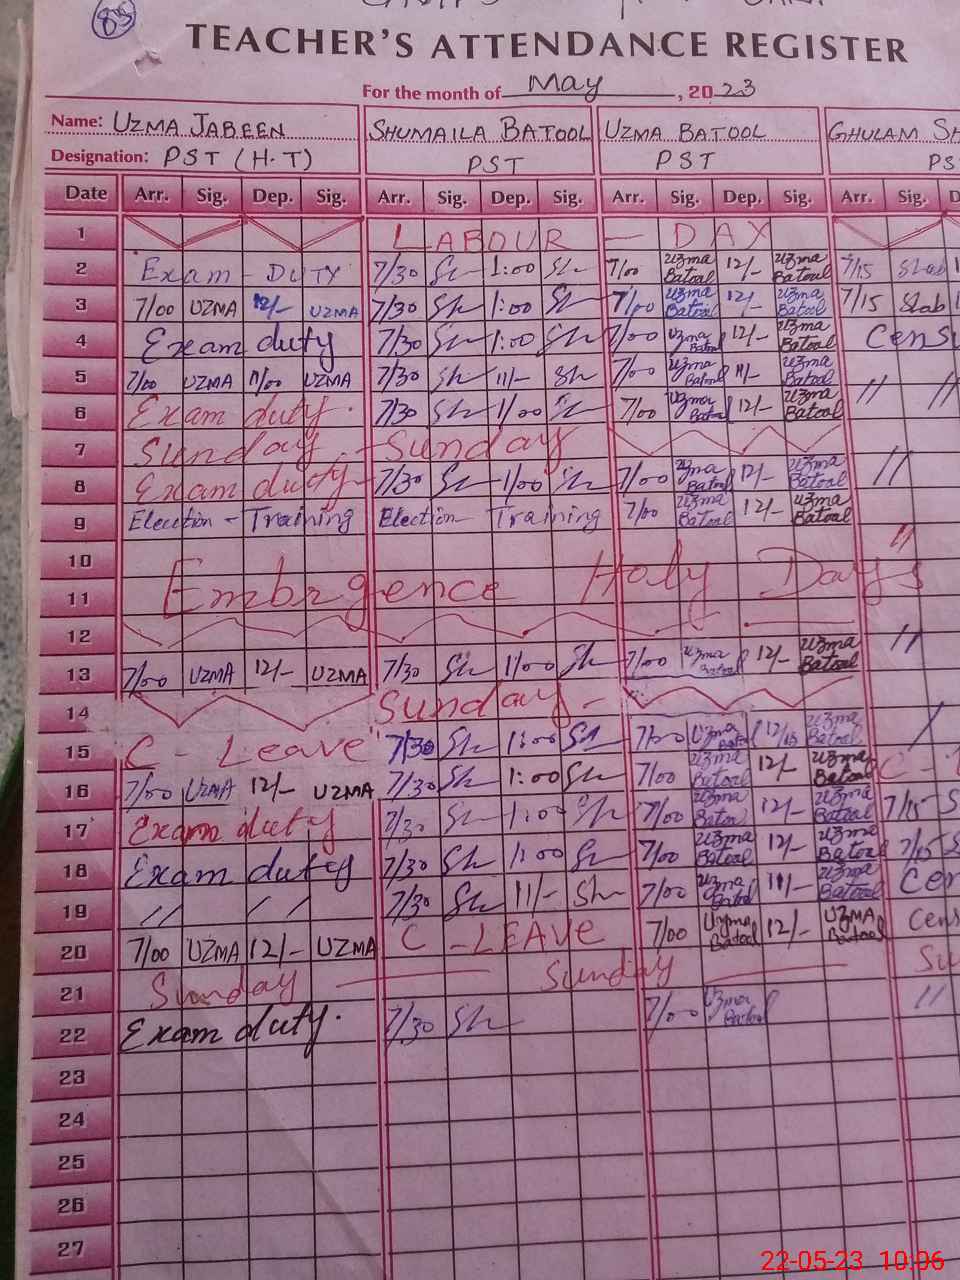 85
TEACHER'S ATTENDANCE REGISTER
For the month of May, 2023
Name: UZMA JABEEN SHUMAILA BATOOL UZMA BATOOL GHULAM SH
Designation: PST (H.T) PST PST PS
Date Arr. Sig. Dep. Sig. Arr. Sig. Dep. Sig. Arr. Sig. Dep. Sig. Arr. Sig. D
1 LABOUR - DAY
2 Exam - DUTY 7/30 Sh 1:00 Sh 7/00 Uzma Batool 12/- Uzma Batool 7/15
3 7/00 UZMA 12/- UZMA 7/30 Sh 1:00 Sh 7/00 Uzma Batool 12/- Uzma Batool 7/15
4 Exam duty 7/30 Sh 1:00 Sh 7/00 Uzma Batool 12/- Uzma Batool Cens
5 7/00 UZMA 11/00 UZMA 7/30 Sh 11/- Sh 7/00 Uzma Batool 11/- Uzma Batool // //
6 Exam duty. 7/30 Sh 1/00 Sh 7/00 Uzma Batool 12/- Uzma Batool
7 Sunday - Sunday
8 Exam duty 7/30 Sh 1/00 Sh 7/00 Uzma Batool 12/- Uzma Batool //
9 Election - Training Election Training 7/00 Uzma Batool 12/- Uzma Batool
10 "
11 Embrgence Holy Days
12 "
13 7/00 UZMA 12/- UZMA 7/30 Sh 1/00 Sh 7/00 Uzma Batool 12/- Uzma Batool
14 Sunday -
15 C - Leave 7/30 Sh 1:00 Sh 7/00 Uzma Batool Uzma Batool /
16 7/00 UZMA 12/- UZMA 7/30 Sh 1:00 Sh 7/00 Uzma Batool 12/- Uzma Batool C -
17 Exam duty 7/30 Sh 1:00 Sh 7/00 Uzma Batool 12/- Uzma Batool 7/15 S
18 Exam duty 7/30 Sh 1:00 Sh 7/00 Uzma Batool 12/- Uzma Batool 7/15 S
19 // // 7/30 Sh 11/- Sh 7/00 Uzma Batool 11/- Uzma Batool Cen
20 7/00 UZMA 12/- UZMA C - LEAVE 7/00 Uzma Batool 12/- UZMA Batool Cens
21 Sunday Sunday Su
22 Exam duty. 7/30 Sh 7/00 Uzma Batool //
23
24
25
26
27
22-05-23 10:06